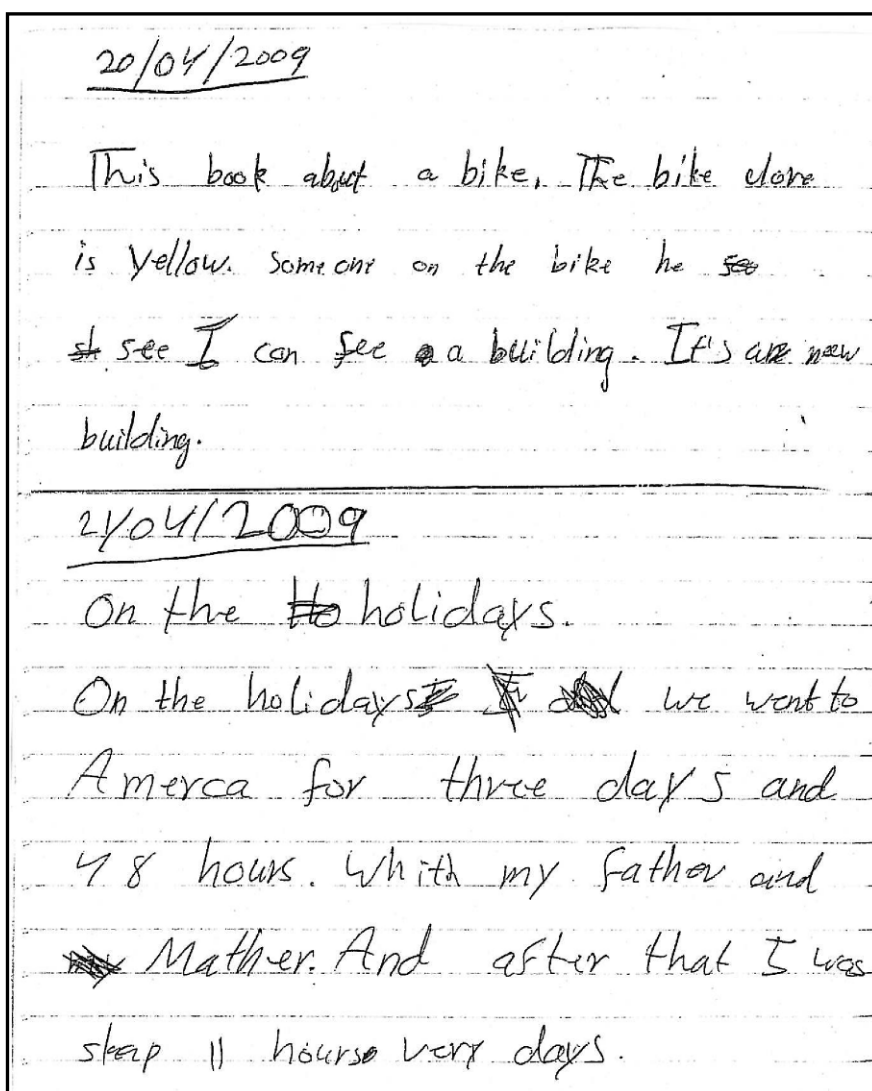 20/04/2009
This book about a bike. The bike clore
is yellow. Someone on the bike he
see I can see a building. It's are new
building.
21/04/2009
On the holidays.
On the holidays we went to
Amerca for three days and
48 hours. Whith my father and
Mather. And after that I was
sleap 11 hours very days.